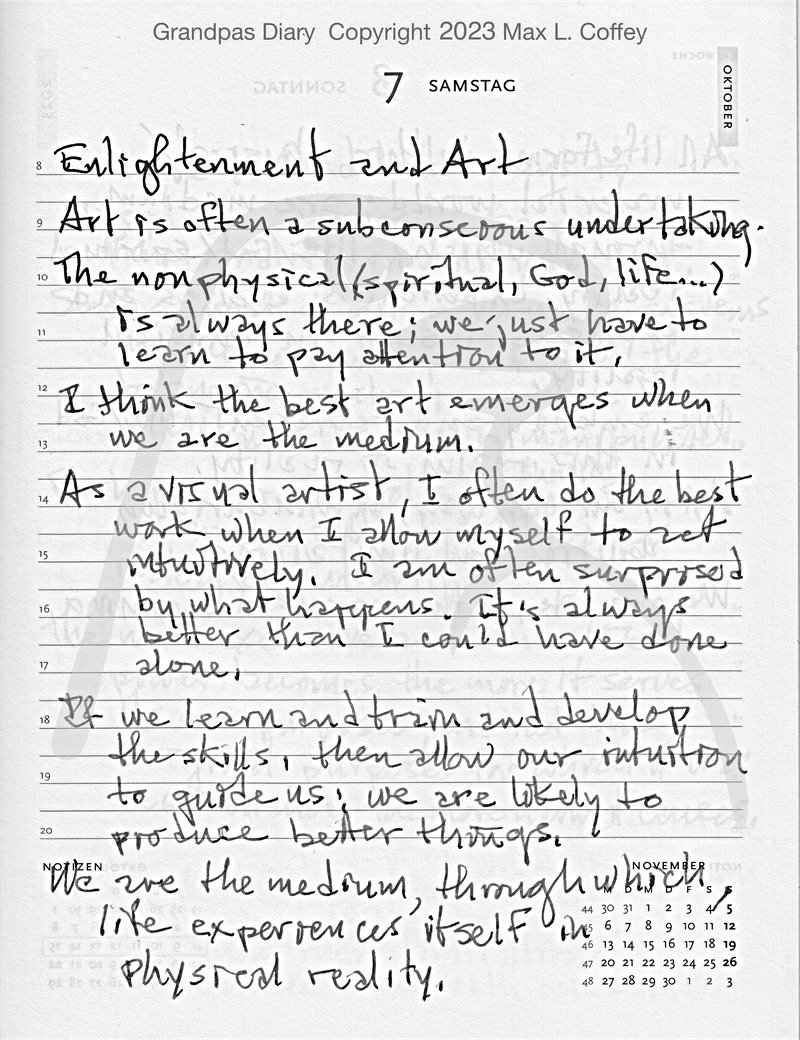 Grandpas Diary Copyright 2023 Max L. Coffey
7 SAMSTAG
OKTOBER
8 Enlightenment and Art
9 Art is often a subconscious undertaking.
10 The nonphysical (spiritual, God, life...)
11 is always there; we just have to
learn to pay attention to it.
12 I think the best art emerges when
13 we are the medium.
14 As a visual artist, I often do the best
work when I allow myself to act
15 intuitively. I am often surprised
16 by what happens. It's always
better than I could have done
17 alone.
18 If we learn and train and develop
the skills, then allow our intuition
19 to guide us; we are likely to
20 produce better things.
NOTIZEN
We are the medium, through which,
life experiences itself in
physical reality.
NOVEMBER
M D M D F S S
44 30 31 1 2 3 4 5
45 6 7 8 9 10 11 12
46 13 14 15 16 17 18 19
47 20 21 22 23 24 25 26
48 27 28 29 30 1 2 3